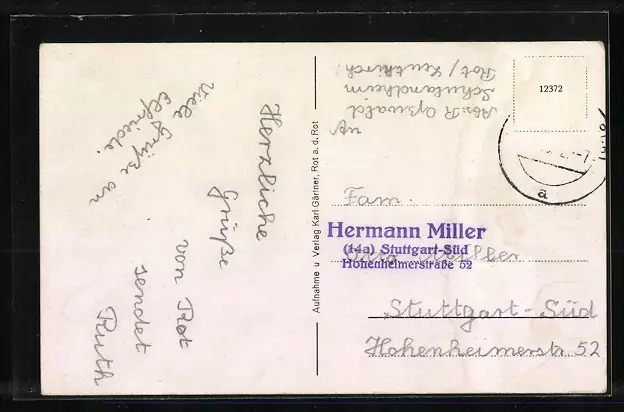 Herzliche
Grüße
von Rot
sendet
Ruth
Viele Grüße an
Elfriede.
Aufnahme u Verlag Karl Gärtner, Rot a. d. Rot
Abs: R.
Schullandheim
Rot / Leutkirch
12372
a
Fam.
Otto Miller
Hermann Miller
(14a) Stuttgart-Süd
Hohenheimerstraße 52
Stuttgart-Süd
Hohenheimerstr 52